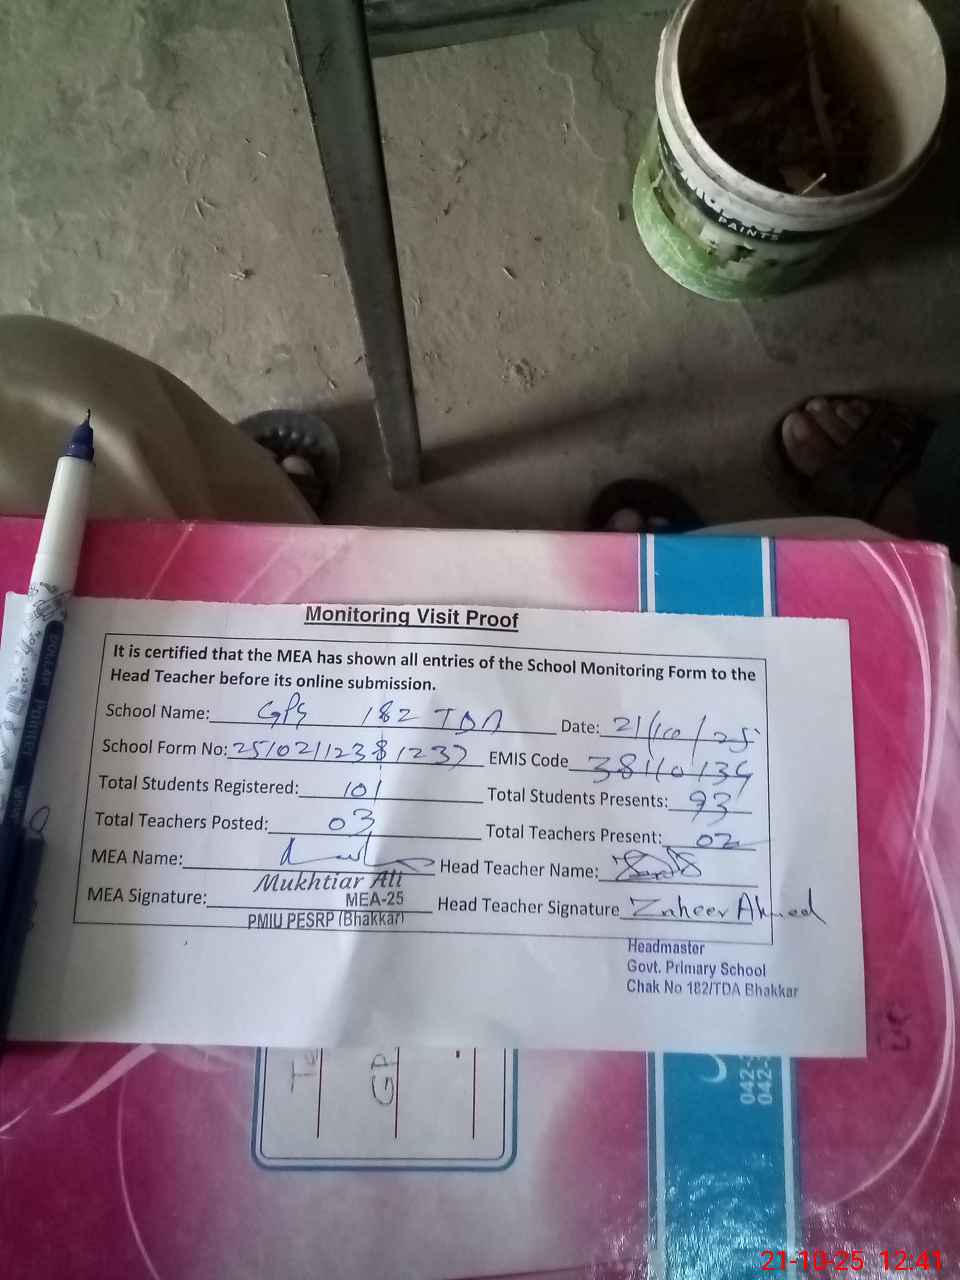 PAINTS
Monitoring Visit Proof
It is certified that the MEA has shown all entries of the School Monitoring Form to the
Head Teacher before its online submission.
School Name: GPS 182 TDA Date: 21/10/25
School Form No: EMIS Code 38110134
Total Students Registered: 101 Total Students Presents: 93
Total Teachers Posted: 03 Total Teachers Present: 02
MEA Name: Head Teacher Name:
Mukhtiar Ali
MEA Signature: MEA-25 Head Teacher Signature Zaheer Ahmed
PMIU PESRP (Bhakkar)
Headmaster
Govt. Primary School
Chak No 182/TDA Bhakkar
DOLLAR Pointer
GP
042-
042-
21-10-25 12:41